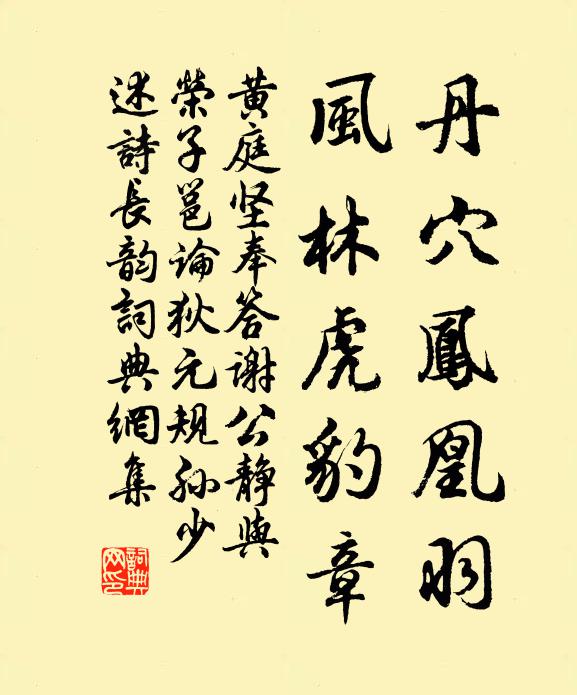 丹穴鳳凰羽
風林虎豹章
黄庭坚奉答谢公静與
榮子邕论狄元规孙少
述詩長韵詞典網集
詞典网印